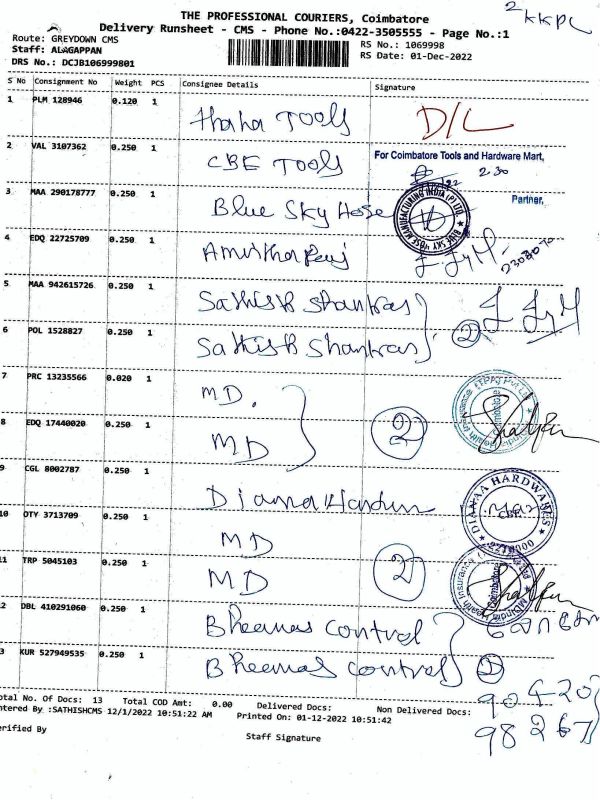 2 KKPL
THE PROFESSIONAL COURIERS, Coimbatore
Delivery Runsheet - CMS - Phone No.:0422-3505555 - Page No.:1
Route: GREYDOWN CMS
RS No.: 1069998
Staff: ALAGAPPAN
RS Date: 01-Dec-2022
DRS No.: DCJB106999801
S No Consignment No Weight PCS Consignee Details Signature
1 PLM 128946 0.120 1 Thaha Tools D/L
2 VAL 3107362 0.250 1 CBE Tools
For Coimbatore Tools and Hardware Mart,
2.30
Partner,
3 MAA 290178777 0.250 1 Blue Sky Hose
BLUE SKY HOSE MANUFACTURING INDIA (P) LTD.
4 EDQ 22725709 0.250 1
5 MAA 942615726 0.250 1 Sathish Shankar
6 POL 1528827 0.250 1 Sathish Shankar 2
7 PRC 13235566 0.020 1 MD.
8 EDQ 17440020 0.250 1 MD 2
9 CGL 8002787 0.250 1 Diana Hardware
DIANAA HARDWARES
10 OTY 3713709 0.250 1 MD
11 TRP 5045103 0.250 1 MD 2
12 DBL 410291060 0.250 1 Bheemas control
3 KUR 527949535 0.250 1 Bheemas control 2
90420
98267
otal No. Of Docs: 13 Total COD Amt: 0.00 Delivered Docs: Non Delivered Docs:
ntered By :SATHISHCMS 12/1/2022 10:51:22 AM Printed On: 01-12-2022 10:51:42
erified By Staff Signature